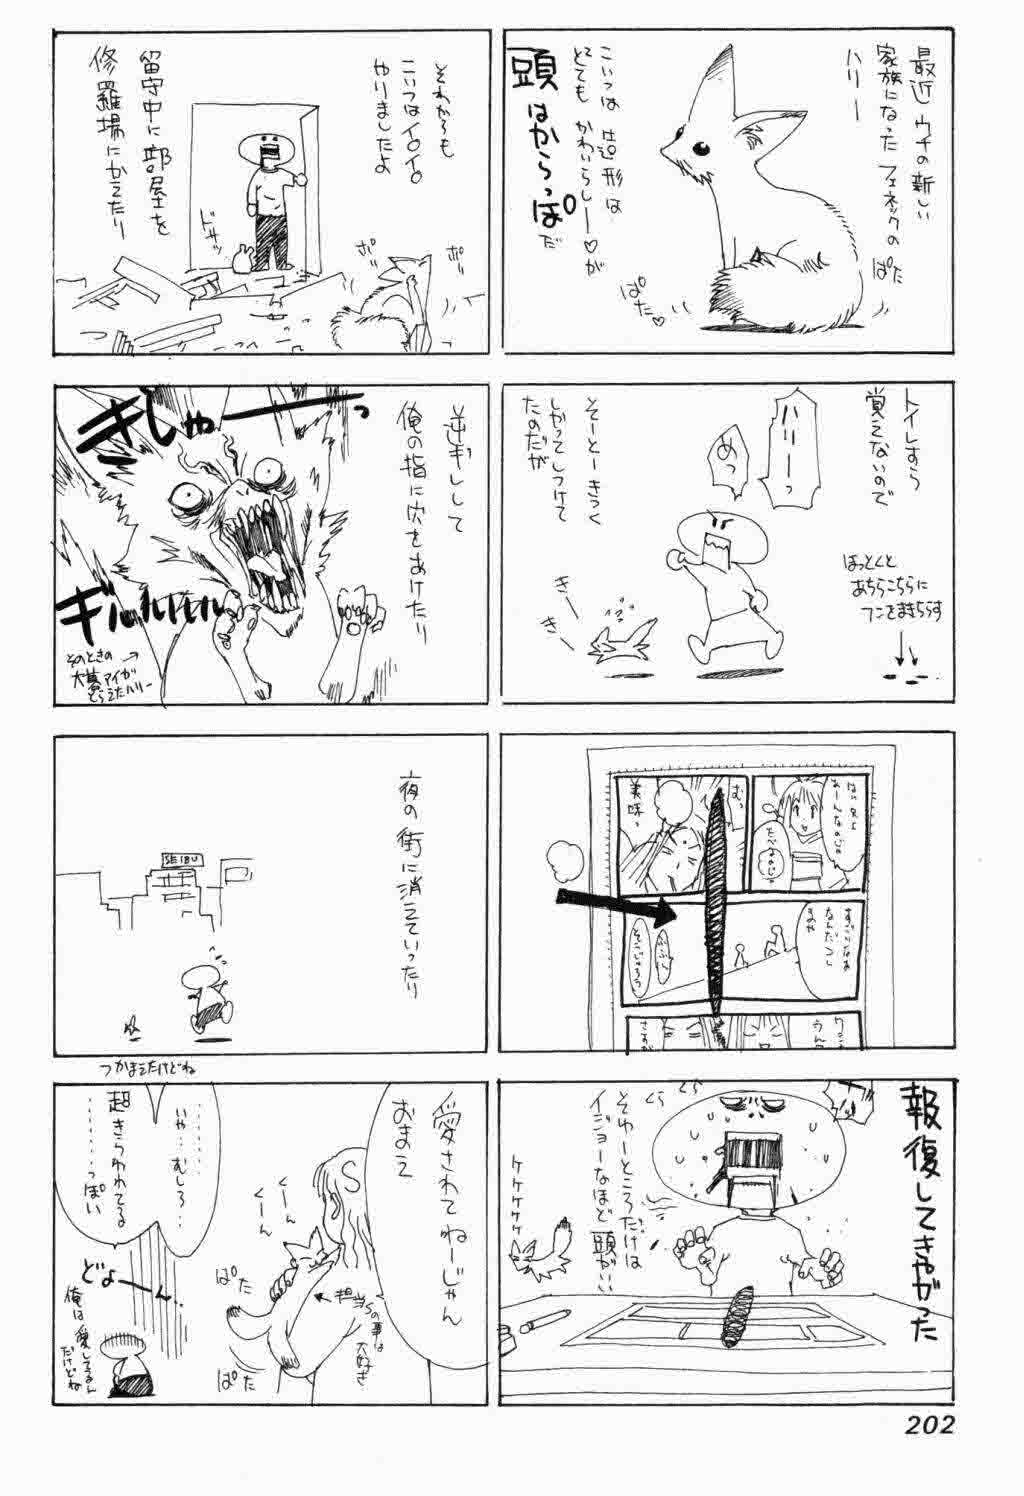 最近ウチの新しい
家族になったフェネックの
ハリー
こいつは造形は
とてもかわいらしー♡が
頭はからっぽだ
ぱた
ぱた♡
トイレすら
覚えないので
ハリーーっ
めっ
そーとーきつく
しかってしつけて
たのだが
きー
きー
ほっとくと
あちらこちらに
フンをまきちらす
はい父上
あーんなのじゃ
むっ
美味っ
すごいなあ
なんだコレ
まめや
報復してきやがった
くら
くら
そゆーところだけは
イジョーなほど頭がいい
ケケケケケ
それからも
こいつはイロイロ
やりましたよ
留守中に部屋を
修羅場にかえたり
ドサッ
ポリ
ポリ
逆ギレして
俺の指に穴をあけたり
きしゃーーっ
ギルルルルル
そのときの
大暮アイが
とらえたハリー
夜の街に消えていったり
SEIBU
つかまえたけどね
愛されてねーじゃん
おまえ
くーん
くーん
ぱた
ぱた
担当Sの事は
大好き
S
‥‥‥‥
いや‥むしろ‥
超きらわれてる
‥‥‥‥っぽい
どよーーん‥
俺は愛してるん
だけどね
202